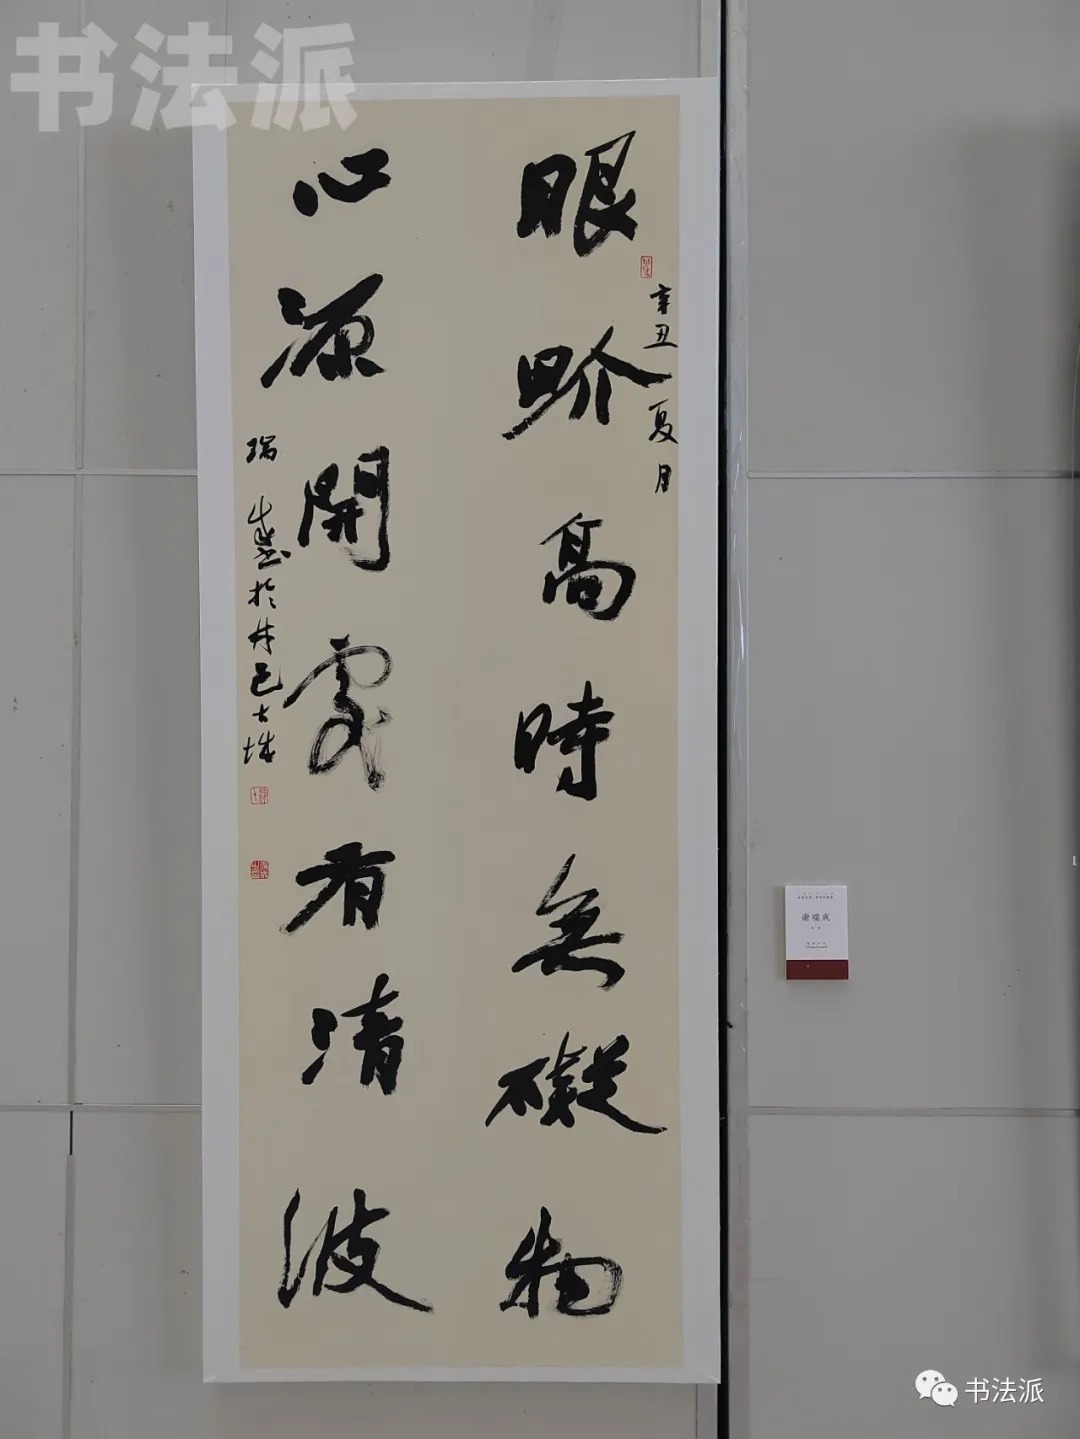 书法派
眼界高時無礙物
辛丑夏月
心源開處有清波
瑞盛於井邑古城
谢瑞成
书法派